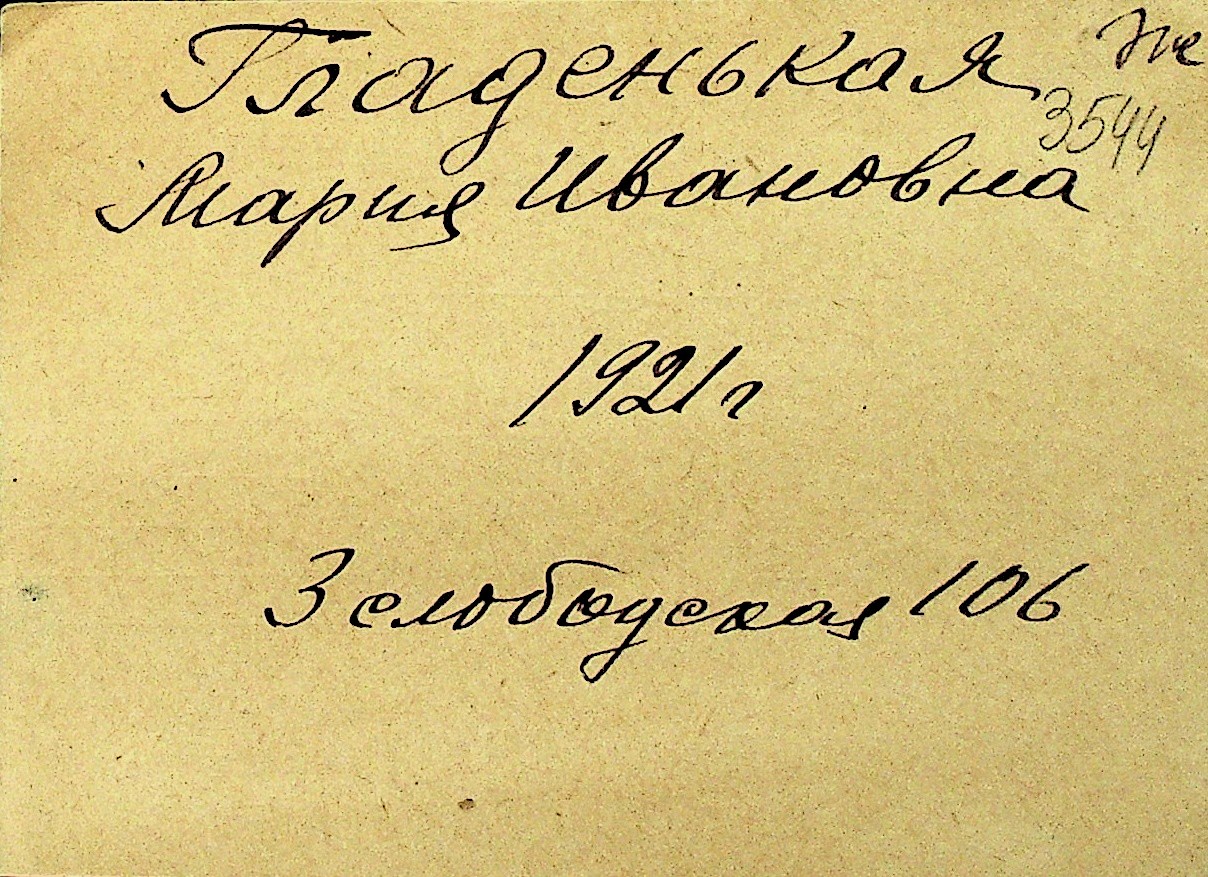 Гладенькая
3544
Мария Ивановна
1921 г
3 слободская 106